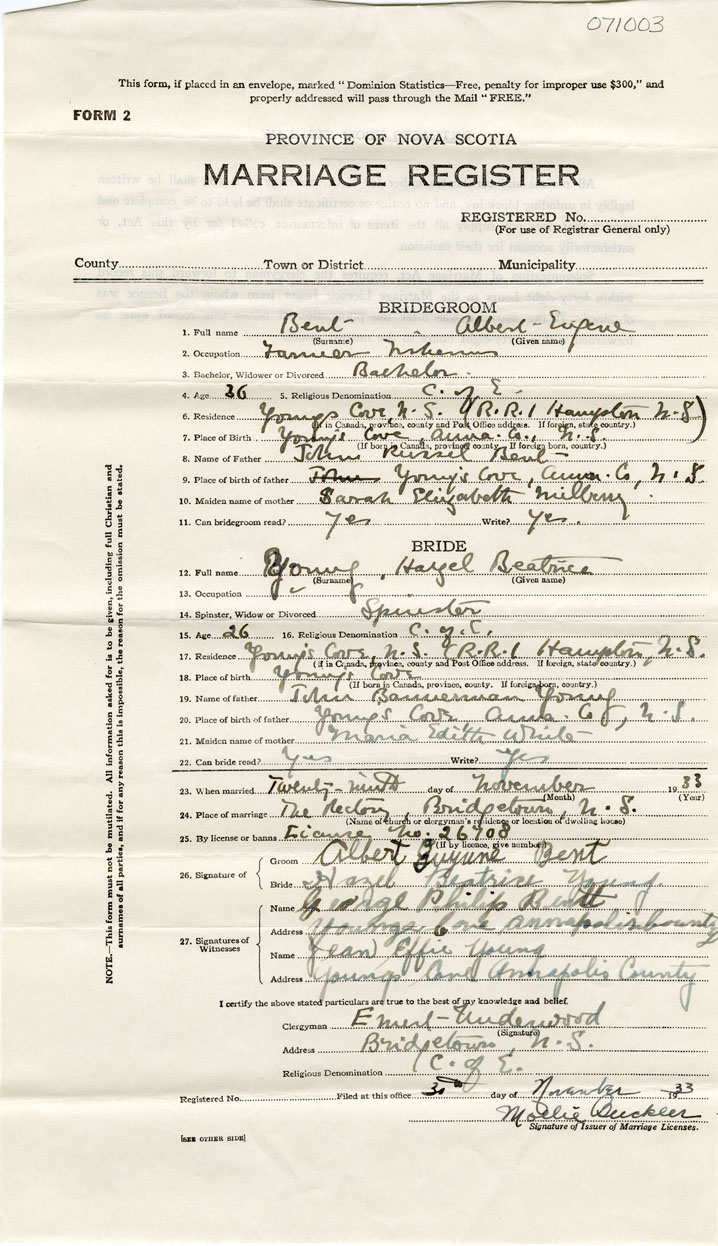 071003
This form, if placed in an envelope, marked “ Dominion Statistics—Free, penalty for improper use $300,” and
properly addressed will pass through the Mail “ FREE.”
FORM 2
PROVINCE OF NOVA SCOTIA
MARRIAGE REGISTER
REGISTERED No.
(For use of Registrar General only)
County Town or District Municipality
BRIDEGROOM
1. Full name Bent Albert Eugene
(Surname) (Given name)
2. Occupation Farmer
3. Bachelor, Widower or Divorced Bachelor
4. Age 36 5. Religious Denomination C. of E.
6. Residence Young's Cove, N.S. (R.R.1 Hampton N.S)
(If in Canada, province, county and Post Office address. If foreign, state country.)
7. Place of Birth Young's Cove, Anna. Co., N.S.
(If born in Canada, province, county. If foreign born, country.)
8. Name of Father John Russel Bent
9. Place of birth of father Young's Cove, Anna. Co, N.S.
10. Maiden name of mother Sarah Elizabeth Milbury
11. Can bridegroom read? Yes Write? Yes.
BRIDE
12. Full name Young, Hazel Beatrice
(Surname) (Given name)
13. Occupation
14. Spinster, Widow or Divorced Spinster
15. Age 26 16. Religious Denomination C. of E.
17. Residence Young's Cove, N.S. (R.R.1 Hampton, N.S.
(If in Canada, province, county and Post Office address. If foreign, state country.)
18. Place of birth Young's Cove
(If born in Canada, province, county. If foreign born, country.)
19. Name of father John Bannerman Young
20. Place of birth of father Young's Cove Anna. Co, N.S.
21. Maiden name of mother Maria Edith White
22. Can bride read? Yes Write? Yes
23. When married Twenty-ninth day of November 1933
(Month) (Year)
24. Place of marriage The Rectory, Bridgetown, N.S.
(Name of church or clergyman's residence or location of dwelling house)
25. By license or banns License No. 26908
(If by licence, give number)
26. Signature of
Groom Albert Eugene Bent
Bride Hazel Beatrice Young.
27. Signatures of Witnesses
Name George Philip Bent
Address Youngs Cove Annapolis County
Name Jean Effie Young
Address Youngs Cove Annapolis County
I certify the above stated particulars are true to the best of my knowledge and belief.
Clergyman Ernest Underwood
(Signature)
Address Bridgetown, N.S.
Religious Denomination C. of E.
Registered No. Filed at this office 30th day of November 1933
Mollie Buckler
Signature of Issuer of Marriage Licenses.
[SEE OTHER SIDE]
NOTE.—This form must not be mutilated. All information asked for is to be given, including full Christian and
surnames of all parties, and if for any reason this is impossible, the reason for the omission must be stated.